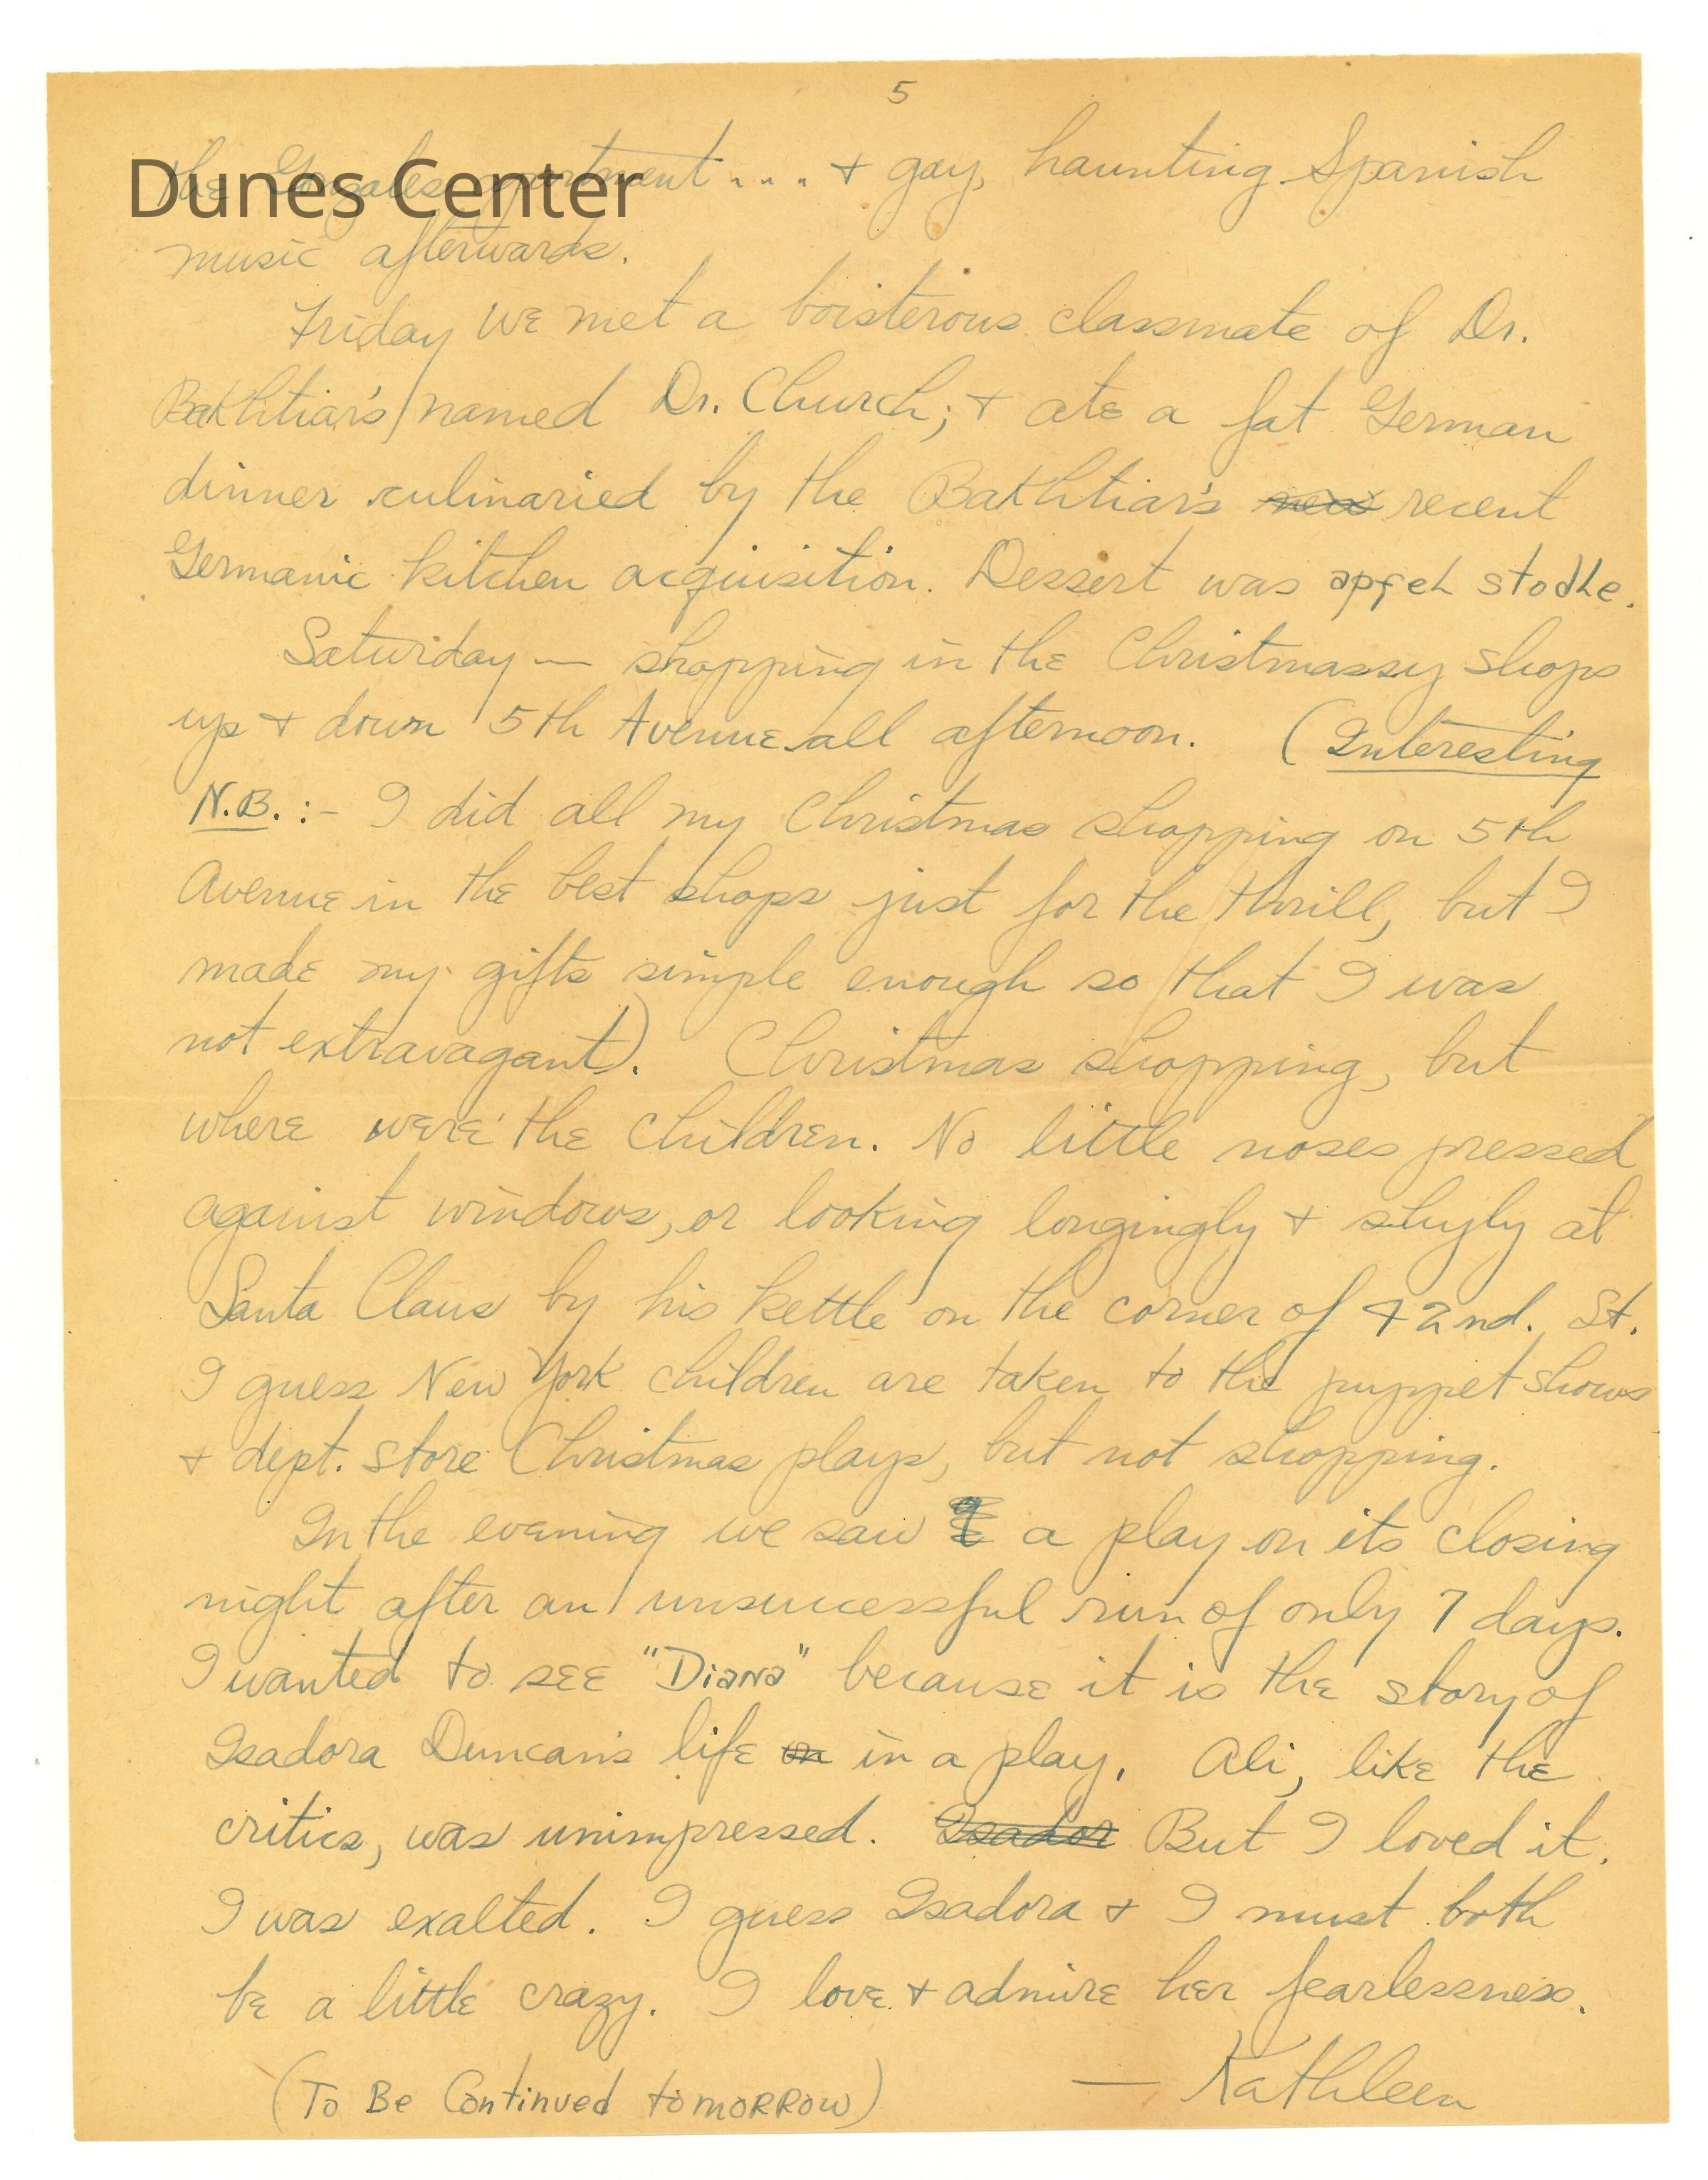 5
Dunes Center
the Gonzales apartment . . . . + gay, haunting Spanish
music afterwards.
Friday we met a boisterous classmate of Dr.
Bakhtiar's named Dr. Church; + ate a fat German
dinner culinaried by the Bakhtiar's new recent
Germanic kitchen acquisition. Dessert was apfel stodle.
Saturday — shopping in the Christmassy shops
up + down 5th Avenue all afternoon. (Interesting
N.B. :- I did all my Christmas shopping on 5th
Avenue in the best shops just for the thrill, but I
made my gifts simple enough so that I was
not extravagant). Christmas shopping, but
where were the children. No little noses pressed
against windows, or looking longingly + shyly at
Santa Claus by his kettle on the corner of 42nd. St.
I guess New York children are taken to the puppet shows
+ dept. store Christmas plays, but not shopping.
In the evening we saw a play on its closing
night after an unsuccessful run of only 7 days.
I wanted to see "Diana" because it is the story of
Isadora Duncan's life on in a play. Ali, like the
critics, was unimpressed. Isador But I loved it.
I was exalted. I guess Isadora + I must both
be a little crazy. I love + admire her fearlessness.
— Kathleen
(To Be Continued tomorrow)